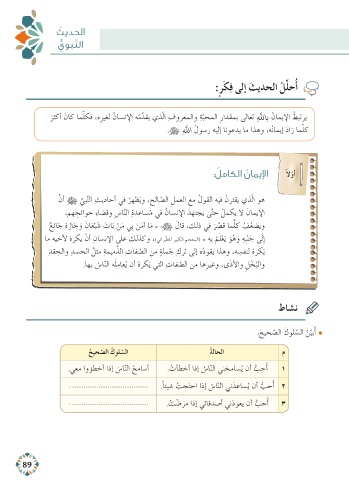 الحديثُ
النّبويُّ
أُحلّلُ الحديثَ إلى فِكَرٍ:
يرتبطُ الإيمانُ باللهِ تعالى بمقدارِ المحبّةِ والمعروفِ الّذي يقدّمُه الإنسانُ لغيرِه، فكلّما كانَ أكثرَ
كلّما زادَ إيمانُه، وهذا ما يدعونا إليه رسولُ اللهِ ﷺ.
أوّلًا
الإيمانُ الكاملُ:
هو الّذي يقترنُ فيه القولُ مع العملِ الصّالحِ، ويظهرُ في أحاديثِ النّبيِّ ﷺ أنَّ
الإيمانَ لا يكملُ حتّى يجتهدَ الإنسانُ في مُساعدةِ النّاسِ وقضاءِ حوائجِهم،
ويضعُفُ كلّما قصّرَ في ذلك، قالَ ﷺ: « مَا آمَنَ بِي مَنْ بَاتَ شَبْعَانَ وَجَارُهُ جَائِعٌ
إِلَى جَنْبِهِ وَهُوَ يَعْلَمُ بِهِ » (المعجم الكبير للطبراني)، وكذلك على الإنسانِ أن يكرهَ لأخيه ما
يكرهُ لنفسِه، وهذا يقودُه إلى تركِ جُملةٍ من الصّفاتِ الذّميمةِ مثلُ الحسدِ والحِقدِ
والبُخلِ والأذى، وغيرِها من الصّفاتِ التي يكرهُ أن يُعاملَه النّاسُ بها.
نشاط
• أُبيّنُ السّلوكَ الصّحيحَ.
م الحالةُ السّلوكُ الصّحيحُ
١ أُحبُّ أن يُسامحَني النّاسُ إذا أخطأتُ. أسامحُ النّاسَ إذا أخطؤوا معي.
٢ أُحبُّ أن يُساعدَني النّاسُ إذا احتجتُ شيئًا. ......................................
٣ أُحبُّ أن يعودَني أصدقائي إذا مرِضتُ. ......................................
89